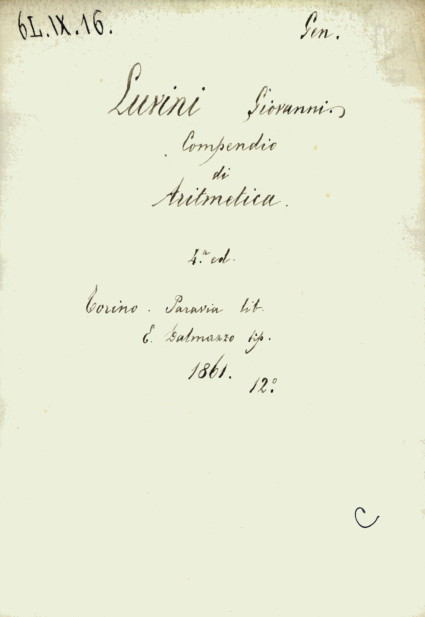 6L.IX.16. Gen.
Luvini Giovanni.
Compendio
di
Aritmetica.
4.ª ed.
Torino. Paravia lib.
E. Dalmazzo tip.
1861.
12°
C